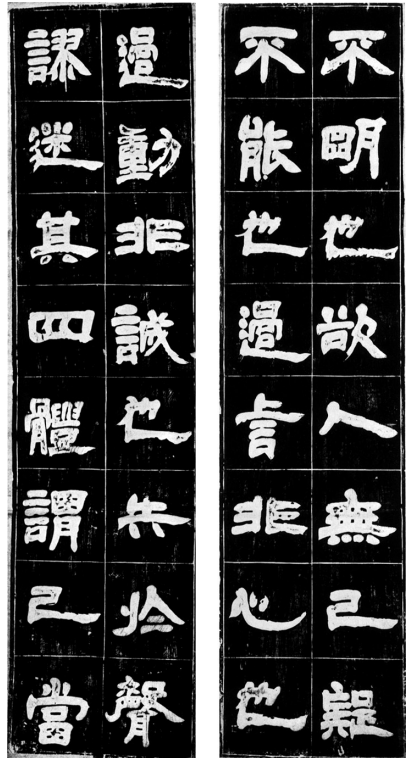 不明也欲人無己疑
不能也過言非心也
過動非誠也失於聲
謬迷其四體謂己當